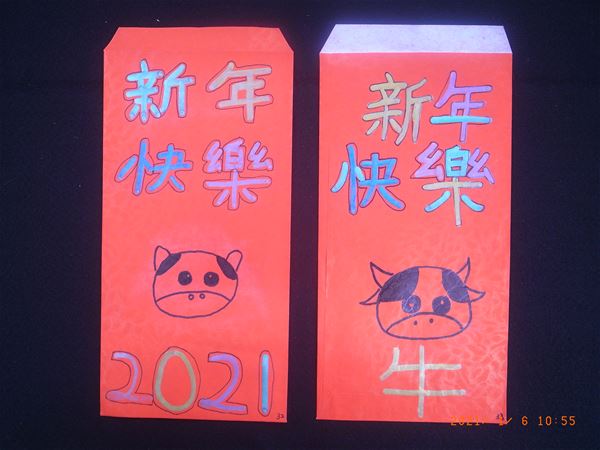 新年
快樂
2021
32
新年
快樂
牛
2021. 1/ 6 10:55